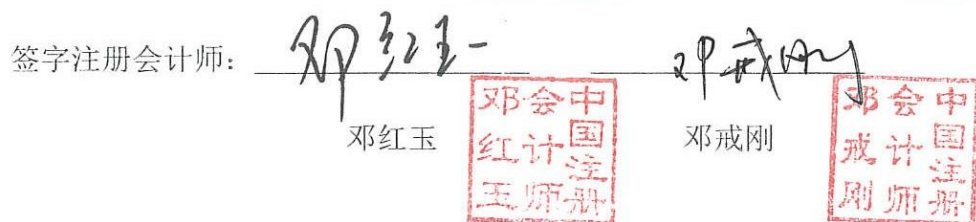 签字注册会计师： 邓红玉 邓戒刚
邓红玉 邓戒刚
中国注册会计师邓红玉 中国注册会计师邓戒刚